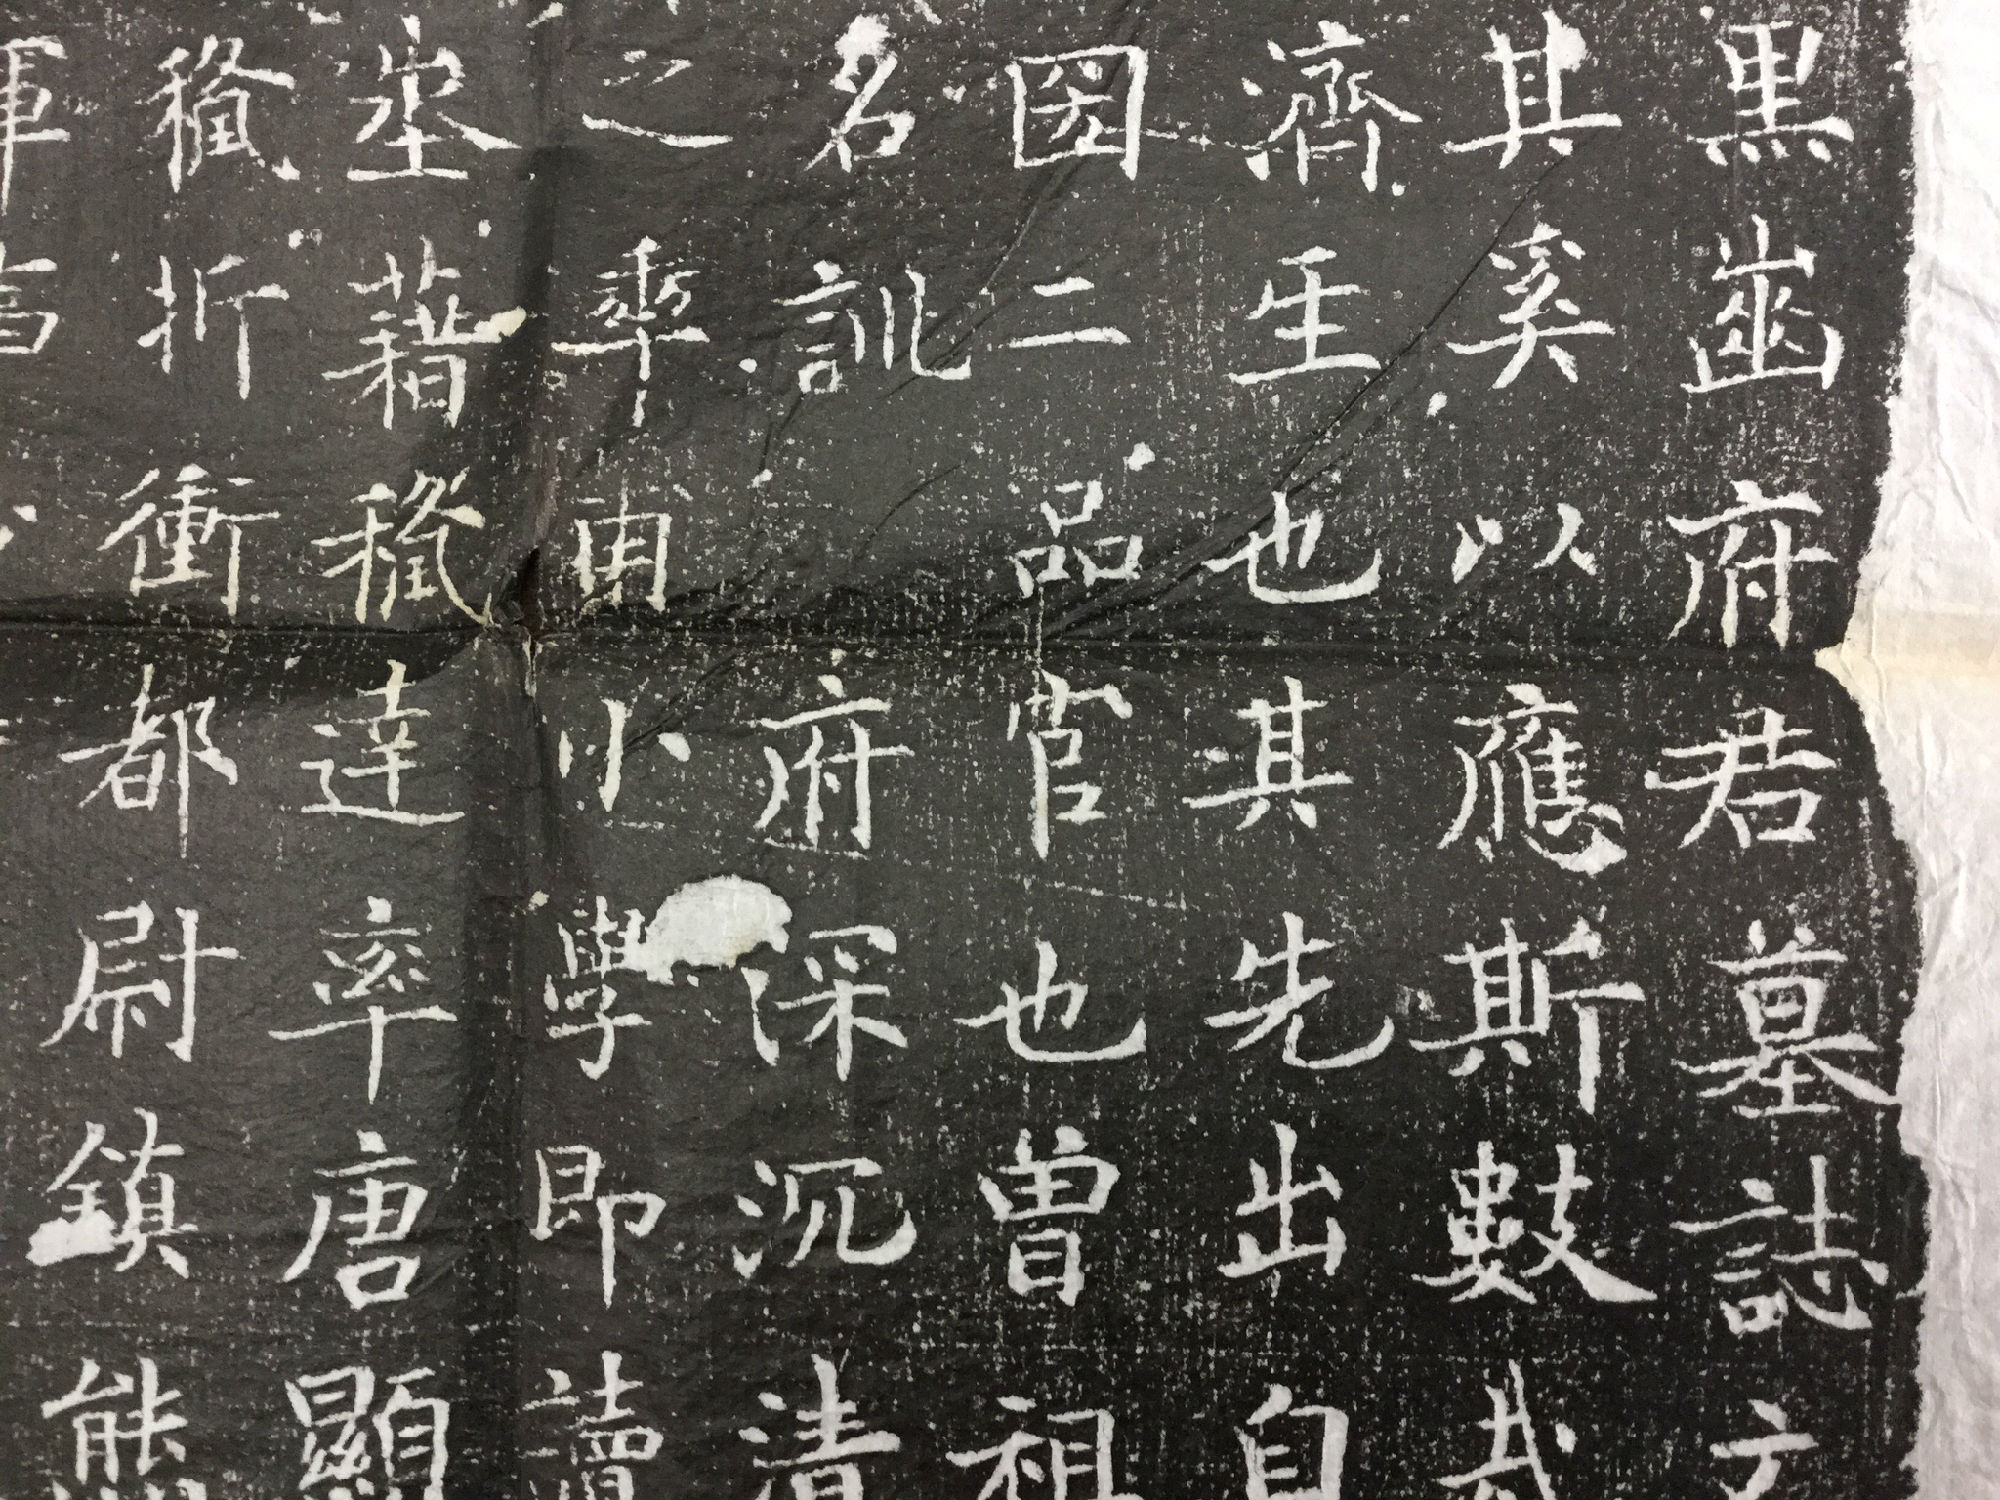 黑齒府君墓誌文
其奚以應斯數哉
濟𤯔也其先出自
圀二品官也曾祖
名訓府深沉清
之年甫小學即讀
埊藉𥠢達率唐顯
𥠢折衝都尉鎮熊